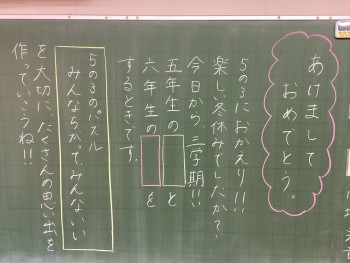 あけまして
おめでとう。
５の３におかえり!!!
楽しい冬休みでしたか？
今日から三学期!!
五年生の と
六年生の を
するときです。
５の３のパズル
みんなちがってみんないい
を大切に、たくさんの思い出を
作っていこうね!!